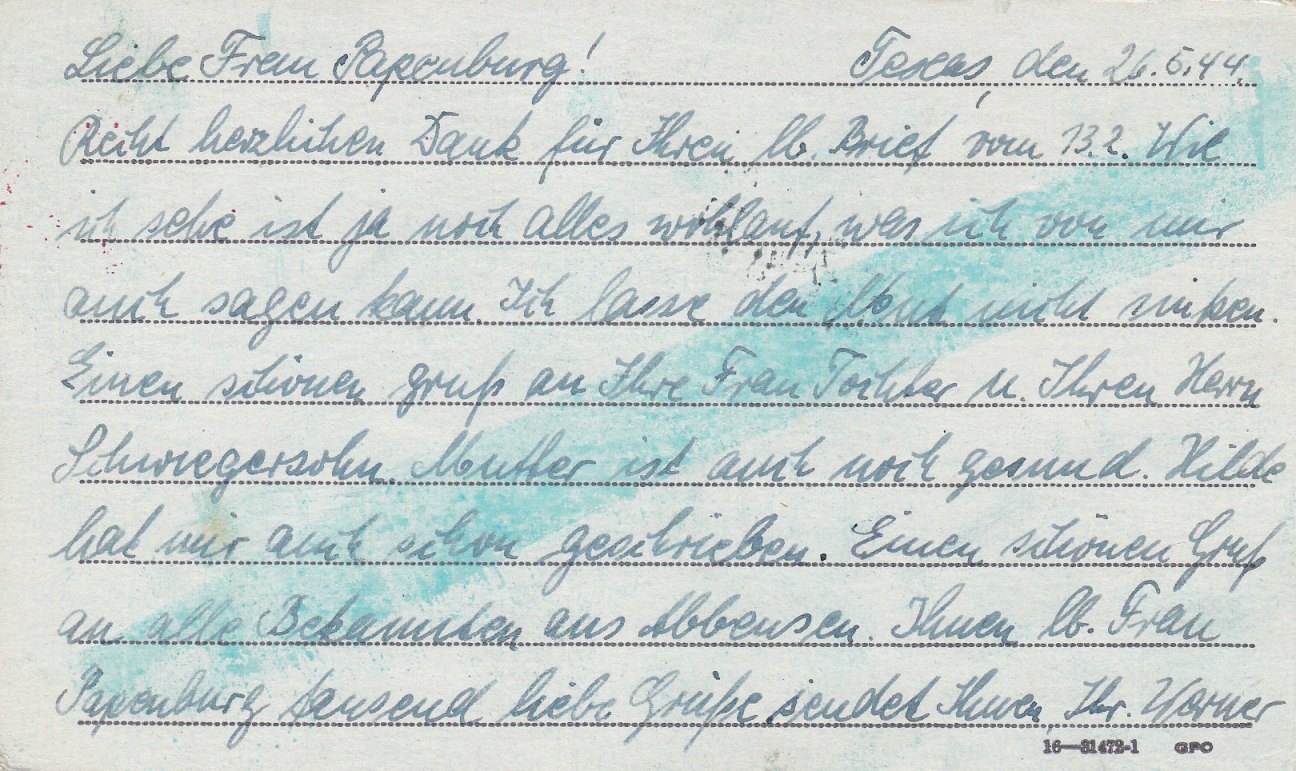 Liebe Frau Papenburg! Texas, den 26.5.44.
Recht herzlichen Dank für Ihren lb. Brief vom 13.2. Wie
ich sehe ist ja noch alles wohlauf, was ich von mir
auch sagen kann. Ich lasse den Mut nicht sinken.
Einen schönen gruß an Ihre Frau Tochter u. Ihren Herrn
Schwiegersohn. Mutter ist auch noch gesund. Hilde
hat mir auch schon geschrieben. Einen schönen Gruß
an alle Bekannten aus Abbensen. Ihnen lb. Frau
Papenburg tausend liebe Grüße sendet Ihnen, Ihr. Werner
16—31472-1 GPO